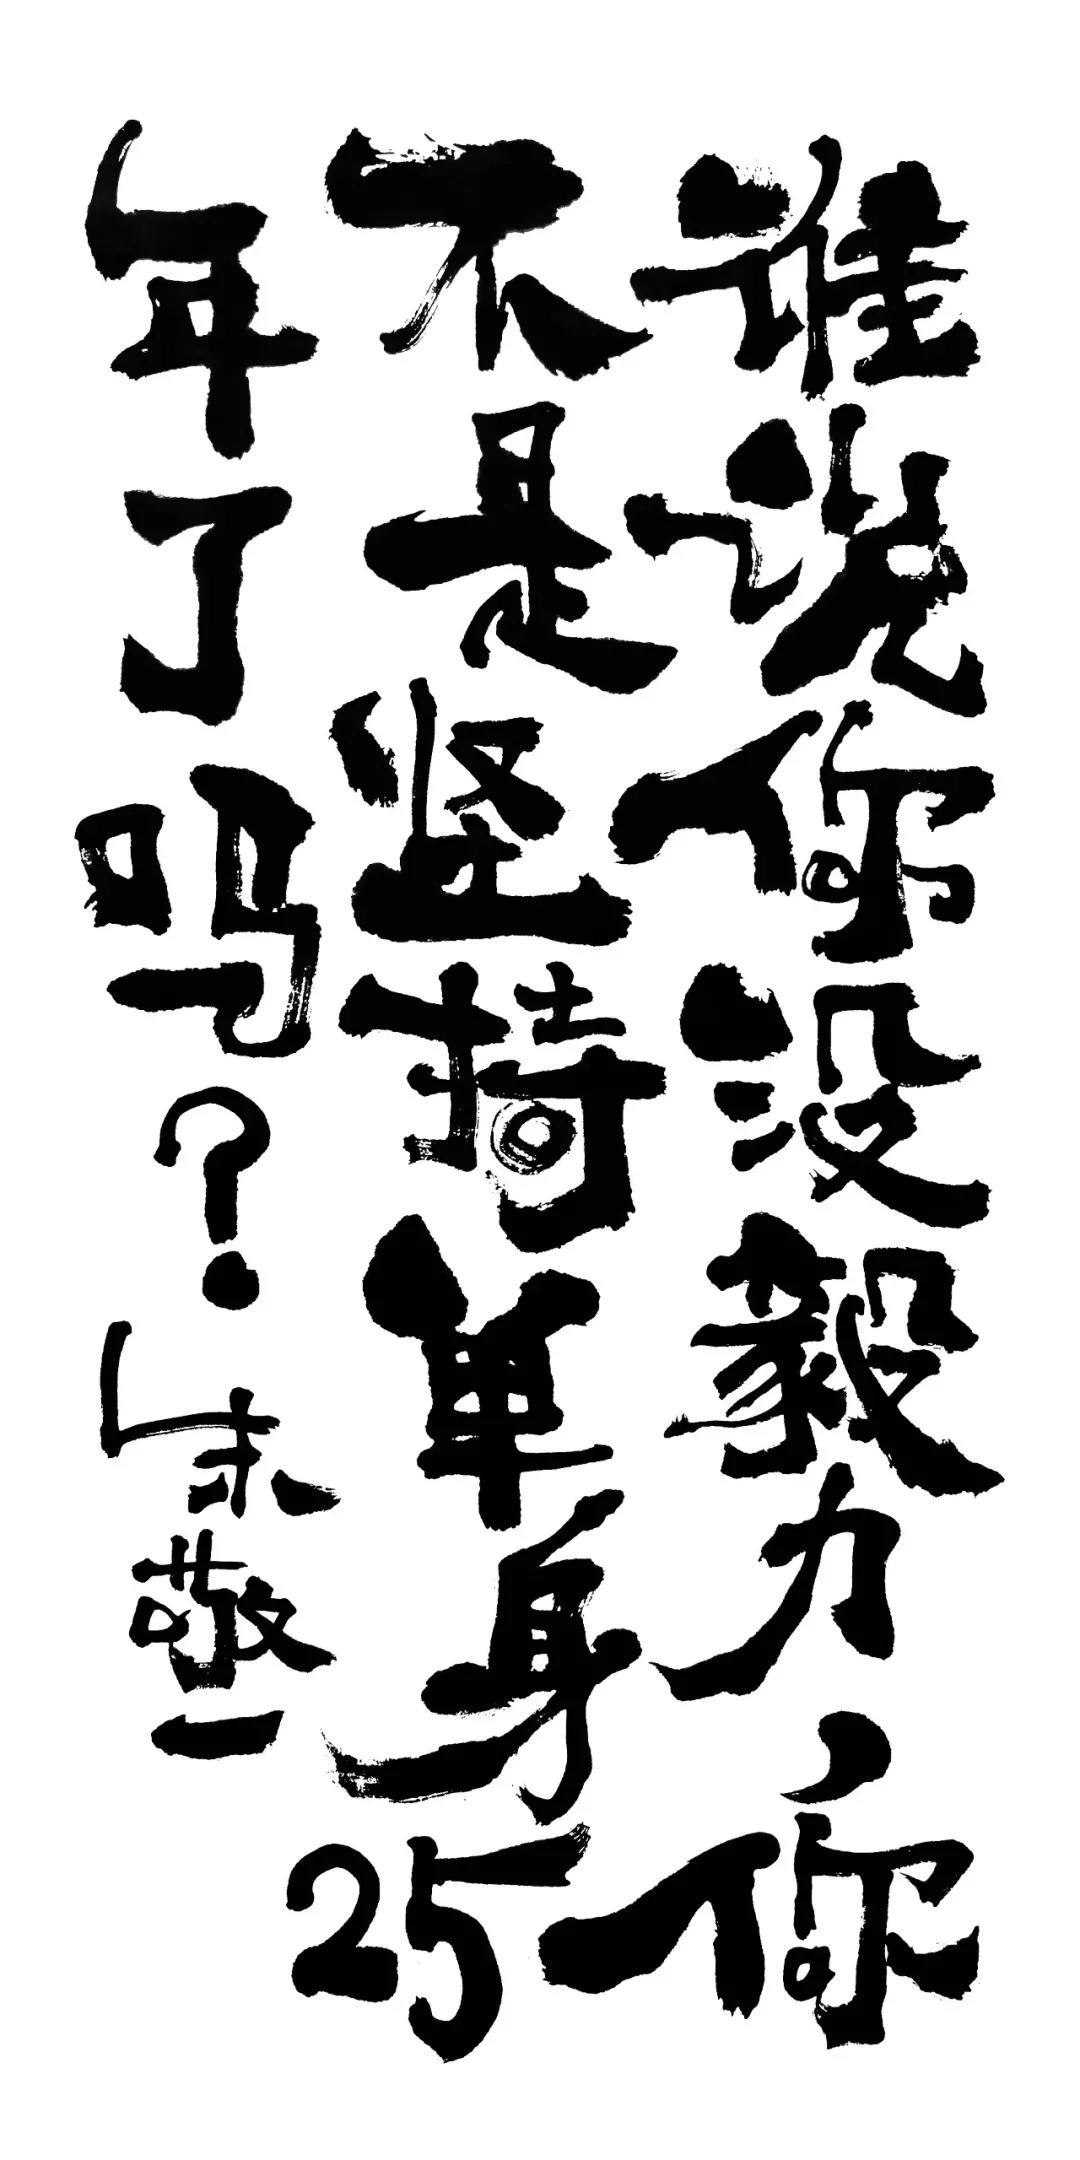 谁说你没毅力，你
不是坚持单身25
年了吗？朱敬一